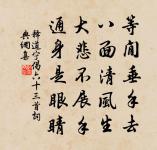 等閒垂手去
八面清風生
大悲不展手
通身是眼睛
釋道寧偈六十三首詞
典網集